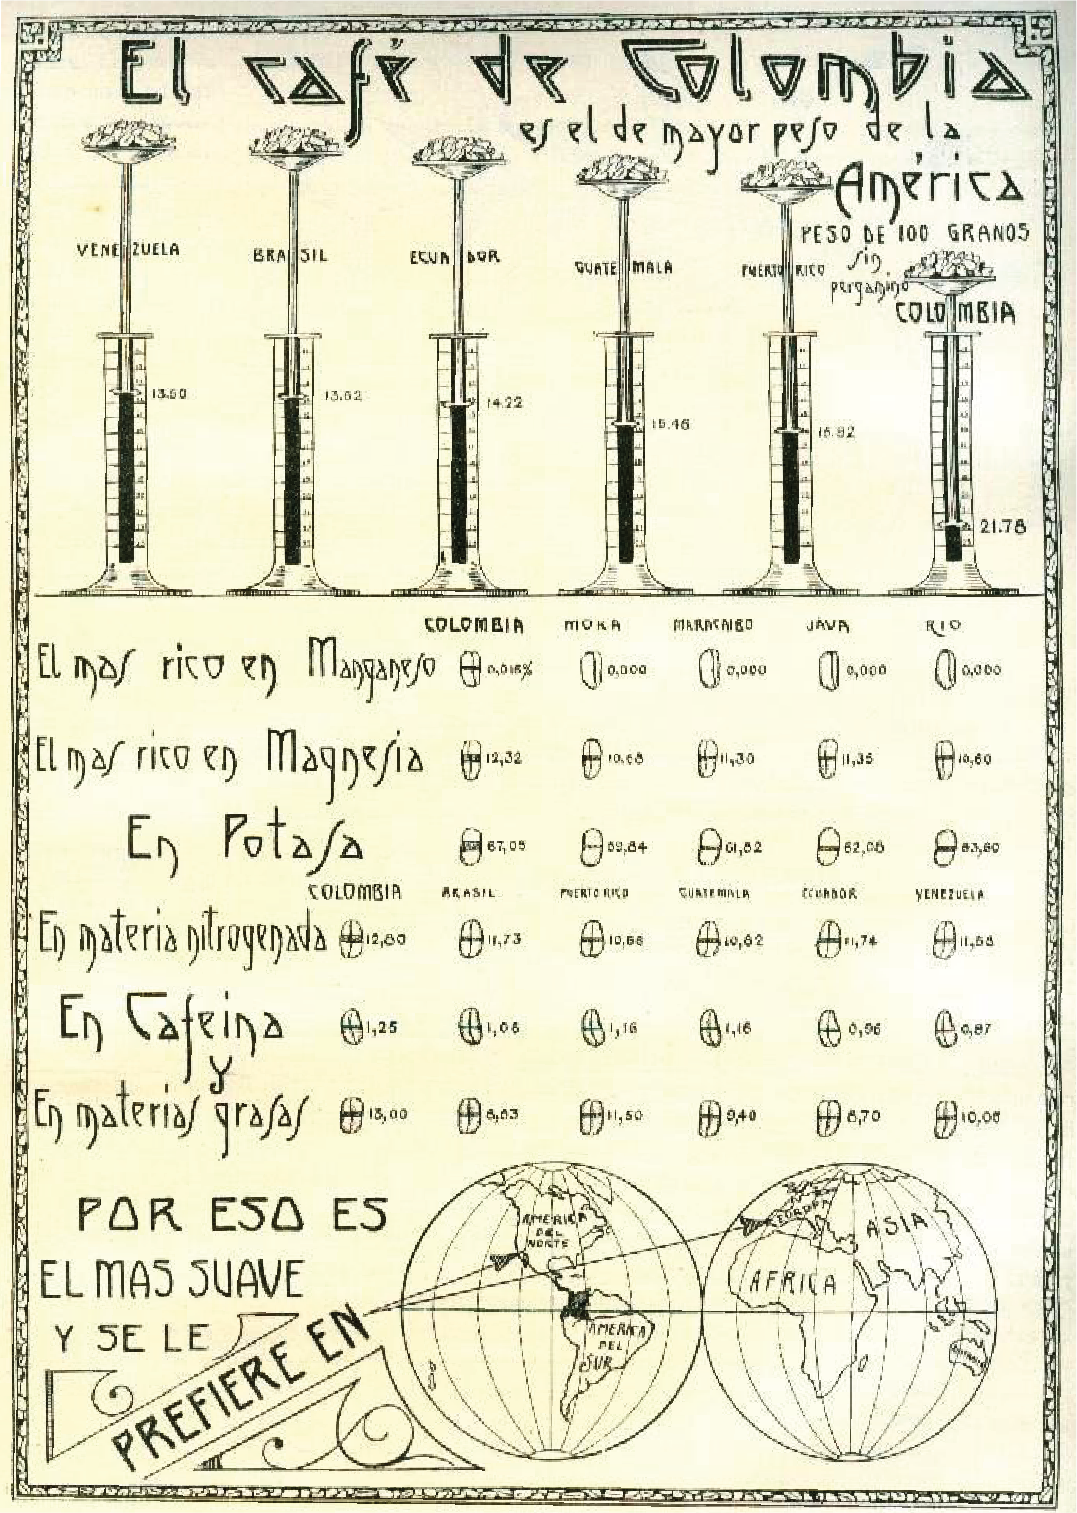 El café de Colombia
es el de mayor peso de la
América
PESO DE 100 GRANOS
sin
pergamino
VENEZUELA BRASIL ECUADOR GUATEMALA PUERTO RICO COLOMBIA
13.60 13.62 14.22 15.46 15.82 21.78
COLOMBIA MOKA MARACAIBO JAVA RIO
El mas rico en Manganeso 0,016% 0,000 0,000 0,000 0,000
El mas rico en Magnesia 12,32 10,68 11,30 11,35 10,60
En Potasa 67,05 59,84 61,82 62,08 63,60
COLOMBIA BRASIL PUERTO RICO GUATEMALA ECUADOR VENEZUELA
En materia nitrogenada 12,80 11,73 10,68 10,62 11,74 11,58
En Cafeina 1,25 1,06 1,16 1,16 0,96 0,87
y
En materias grasas 13,00 8,63 11,50 9,40 8,70 10,08
POR ESO ES
EL MAS SUAVE
Y SE LE
PREFIERE EN
AMERICA
DEL
NORTE
AMERICA
DEL
SUR
EUROPA
ASIA
AFRICA